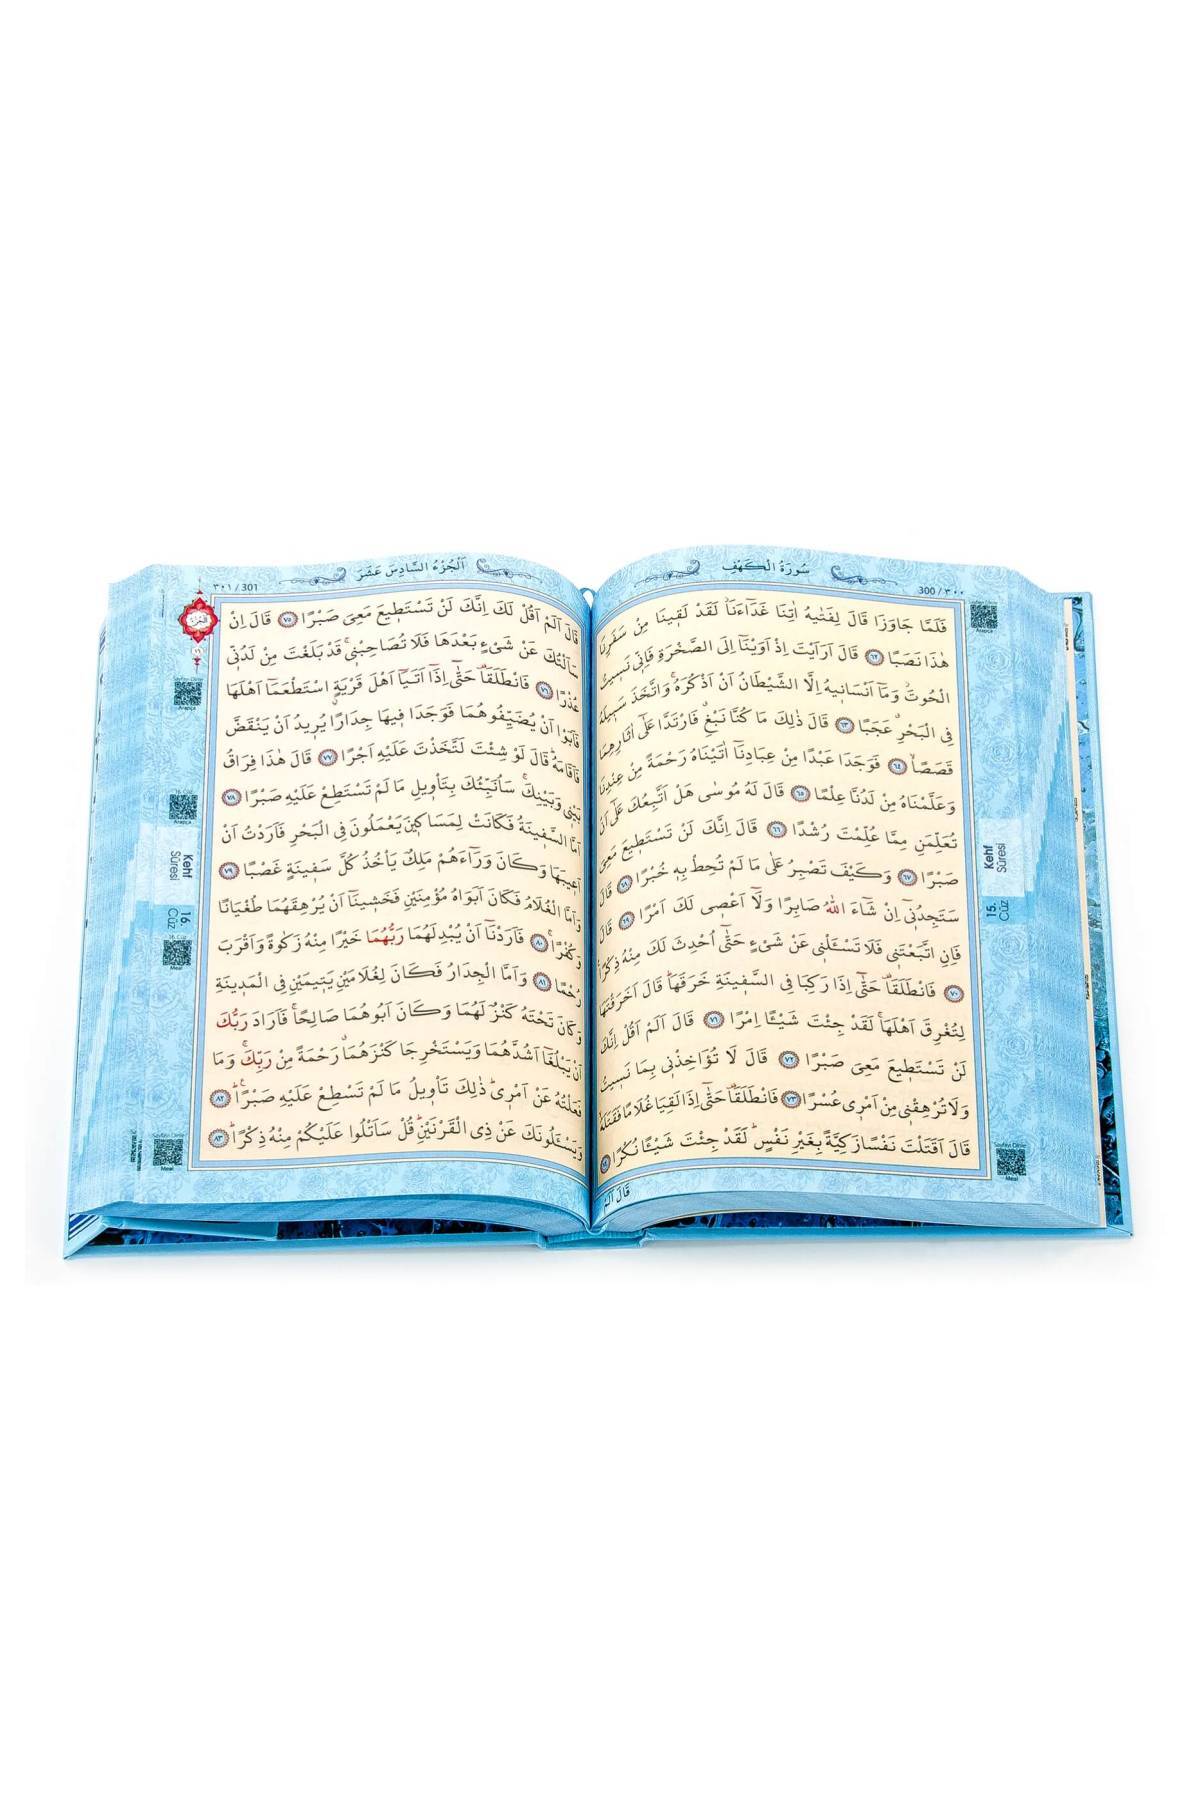 300 / ٣٠٠
سُورَةُ الْكَهْفِ
فَلَمَّا جَاوَزَا قَالَ لِفَتٰيهُ اٰتِنَا غَدَٓاءَنَاۘ لَقَدْ لَقٖينَا مِنْ سَفَرِنَا
هٰذَا نَصَبًا ٦٢ قَالَ اَرَاَيْتَ اِذْ اَوَيْنَٓا اِلَى الصَّخْرَةِ فَاِنّٖى نَسٖيتُ
الْحُوتَۘ وَمَٓا اَنْسَانٖيهُ اِلَّا الشَّيْطَانُ اَنْ اَذْكُرَهُۚ وَاتَّخَذَ سَبٖيلَهُ
فِى الْبَحْرِۗ عَجَبًا ٦٣ قَالَ ذٰلِكَ مَا كُنَّا نَبْغِۗ فَارْتَدَّا عَلٰٓى اٰثَارِهِمَا
قَصَصًاۙ ٦٤ فَوَجَدَا عَبْدًا مِنْ عِبَادِنَٓا اٰتَيْنَاهُ رَحْمَةً مِنْ عِنْدِنَا
وَعَلَّمْنَاهُ مِنْ لَدُنَّا عِلْمًا ٦٥ قَالَ لَهُ مُوسٰى هَلْ اَتَّبِعُكَ عَلٰٓى اَنْ
تُعَلِّمَنِ مِمَّا عُلِّمْتَ رُشْدًا ٦٦ قَالَ اِنَّكَ لَنْ تَسْتَطٖيعَ مَعِىَ
صَبْرًا ٦٧ وَكَيْفَ تَصْبِرُ عَلٰى مَا لَمْ تُحِطْ بِهٖ خُبْرًا ٦٨ قَالَ
سَتَجِدُنٖٓى اِنْ شَٓاءَ اللّٰهُ صَابِرًا وَلَٓا اَعْصٖى لَكَ اَمْرًا ٦٩ قَالَ
فَاِنِ اتَّبَعْتَنٖى فَلَا تَسْـَٔلْنٖى عَنْ شَىْءٍ حَتّٰٓى اُحْدِثَ لَكَ مِنْهُ ذِكْرًا
٧٠ فَانْطَلَقَا۠ حَتّٰٓى اِذَا رَكِبَا فِى السَّفٖينَةِ خَرَقَهَاۜ قَالَ اَخَرَقْتَهَا
لِتُغْرِقَ اَهْلَهَاۚ لَقَدْ جِئْتَ شَيْـًٔا اِمْرًا ٧١ قَالَ اَلَمْ اَقُلْ اِنَّكَ
لَنْ تَسْتَطٖيعَ مَعِىَ صَبْرًا ٧٢ قَالَ لَا تُؤَاخِذْنٖى بِمَا نَسٖيتُ
وَلَا تُرْهِقْنٖى مِنْ اَمْرٖى عُسْرًا ٧٣ فَانْطَلَقَا۠ حَتّٰٓى اِذَا لَقِيَا غُلَامًا فَقَتَلَهُ
قَالَ اَقَتَلْتَ نَفْسًا زَكِيَّةً بِغَيْرِ نَفْسٍۜ لَقَدْ جِئْتَ شَيْـًٔا نُكْرًا ٧٤
قَالَ اَلَمْ
Arapça
Kehf
Sûresi
15.
Cüz
Meal
اَلْجُزْءُ السَّادِسَ عَشَرَ
٣٠١ / 301
قَالَ اَلَمْ اَقُلْ لَكَ اِنَّكَ لَنْ تَسْتَطٖيعَ مَعِىَ صَبْرًا ٧٥ قَالَ اِنْ
سَاَلْتُكَ عَنْ شَىْءٍ بَعْدَهَا فَلَا تُصَاحِبْنٖىۚ قَدْ بَلَغْتَ مِنْ لَدُنّٖى
عُذْرًا ٧٦ فَانْطَلَقَا۠ حَتّٰٓى اِذَٓا اَتَيَٓا اَهْلَ قَرْيَةٍۨ اسْتَطْعَمَٓا اَهْلَهَا
فَاَبَوْا اَنْ يُضَيِّفُوهُمَا فَوَجَدَا فٖيهَا جِدَارًا يُرٖيدُ اَنْ يَنْقَضَّ
فَاَقَامَهُۜ قَالَ لَوْ شِئْتَ لَتَّخَذْتَ عَلَيْهِ اَجْرًا ٧٧ قَالَ هٰذَا فِرَاقُ
بَيْنٖى وَبَيْنِكَۚ سَاُنَبِّئُكَ بِتَأْوٖيلِ مَا لَمْ تَسْتَطِعْ عَلَيْهِ صَبْرًا ٧٨
اَمَّا السَّفٖينَةُ فَكَانَتْ لِمَسَاكٖينَ يَعْمَلُونَ فِى الْبَحْرِ فَاَرَدْتُ اَنْ
اَعٖيبَهَا وَكَانَ وَرَٓاءَهُمْ مَلِكٌ يَأْخُذُ كُلَّ سَفٖينَةٍ غَصْبًا ٧٩
وَاَمَّا الْغُلَامُ فَكَانَ اَبَوَاهُ مُؤْمِنَيْنِ فَخَشٖينَٓا اَنْ يُرْهِقَهُمَا طُغْيَانًا
وَكُفْرًاۚ ٨٠ فَاَرَدْنَٓا اَنْ يُبْدِلَهُمَا رَبُّهُمَا خَيْرًا مِنْهُ زَكٰوةً وَاَقْرَبَ
رُحْمًا ٨١ وَاَمَّا الْجِدَارُ فَكَانَ لِغُلَامَيْنِ يَتٖيمَيْنِ فِى الْمَدٖينَةِ
وَكَانَ تَحْتَهُ كَنْزٌ لَهُمَا وَكَانَ اَبُوهُمَا صَالِحًاۚ فَاَرَادَ رَبُّكَ
اَنْ يَبْلُغَٓا اَشُدَّهُمَا وَيَسْتَخْرِجَا كَنْزَهُمَاۗ رَحْمَةً مِنْ رَبِّكَۚ وَمَا
فَعَلْتُهُ عَنْ اَمْرٖىۜ ذٰلِكَ تَأْوٖيلُ مَا لَمْ تَسْطِعْ عَلَيْهِ صَبْرًاۜ ٨٢
وَيَسْـَٔلُونَكَ عَنْ ذِى الْقَرْنَيْنِۜ قُلْ سَاَتْلُوا عَلَيْكُمْ مِنْهُ ذِكْرًاۜ ٨٣
Arapça
Arapça
Kehf
Sûresi
16.
Cüz
16. Cüz
Meal
Meal